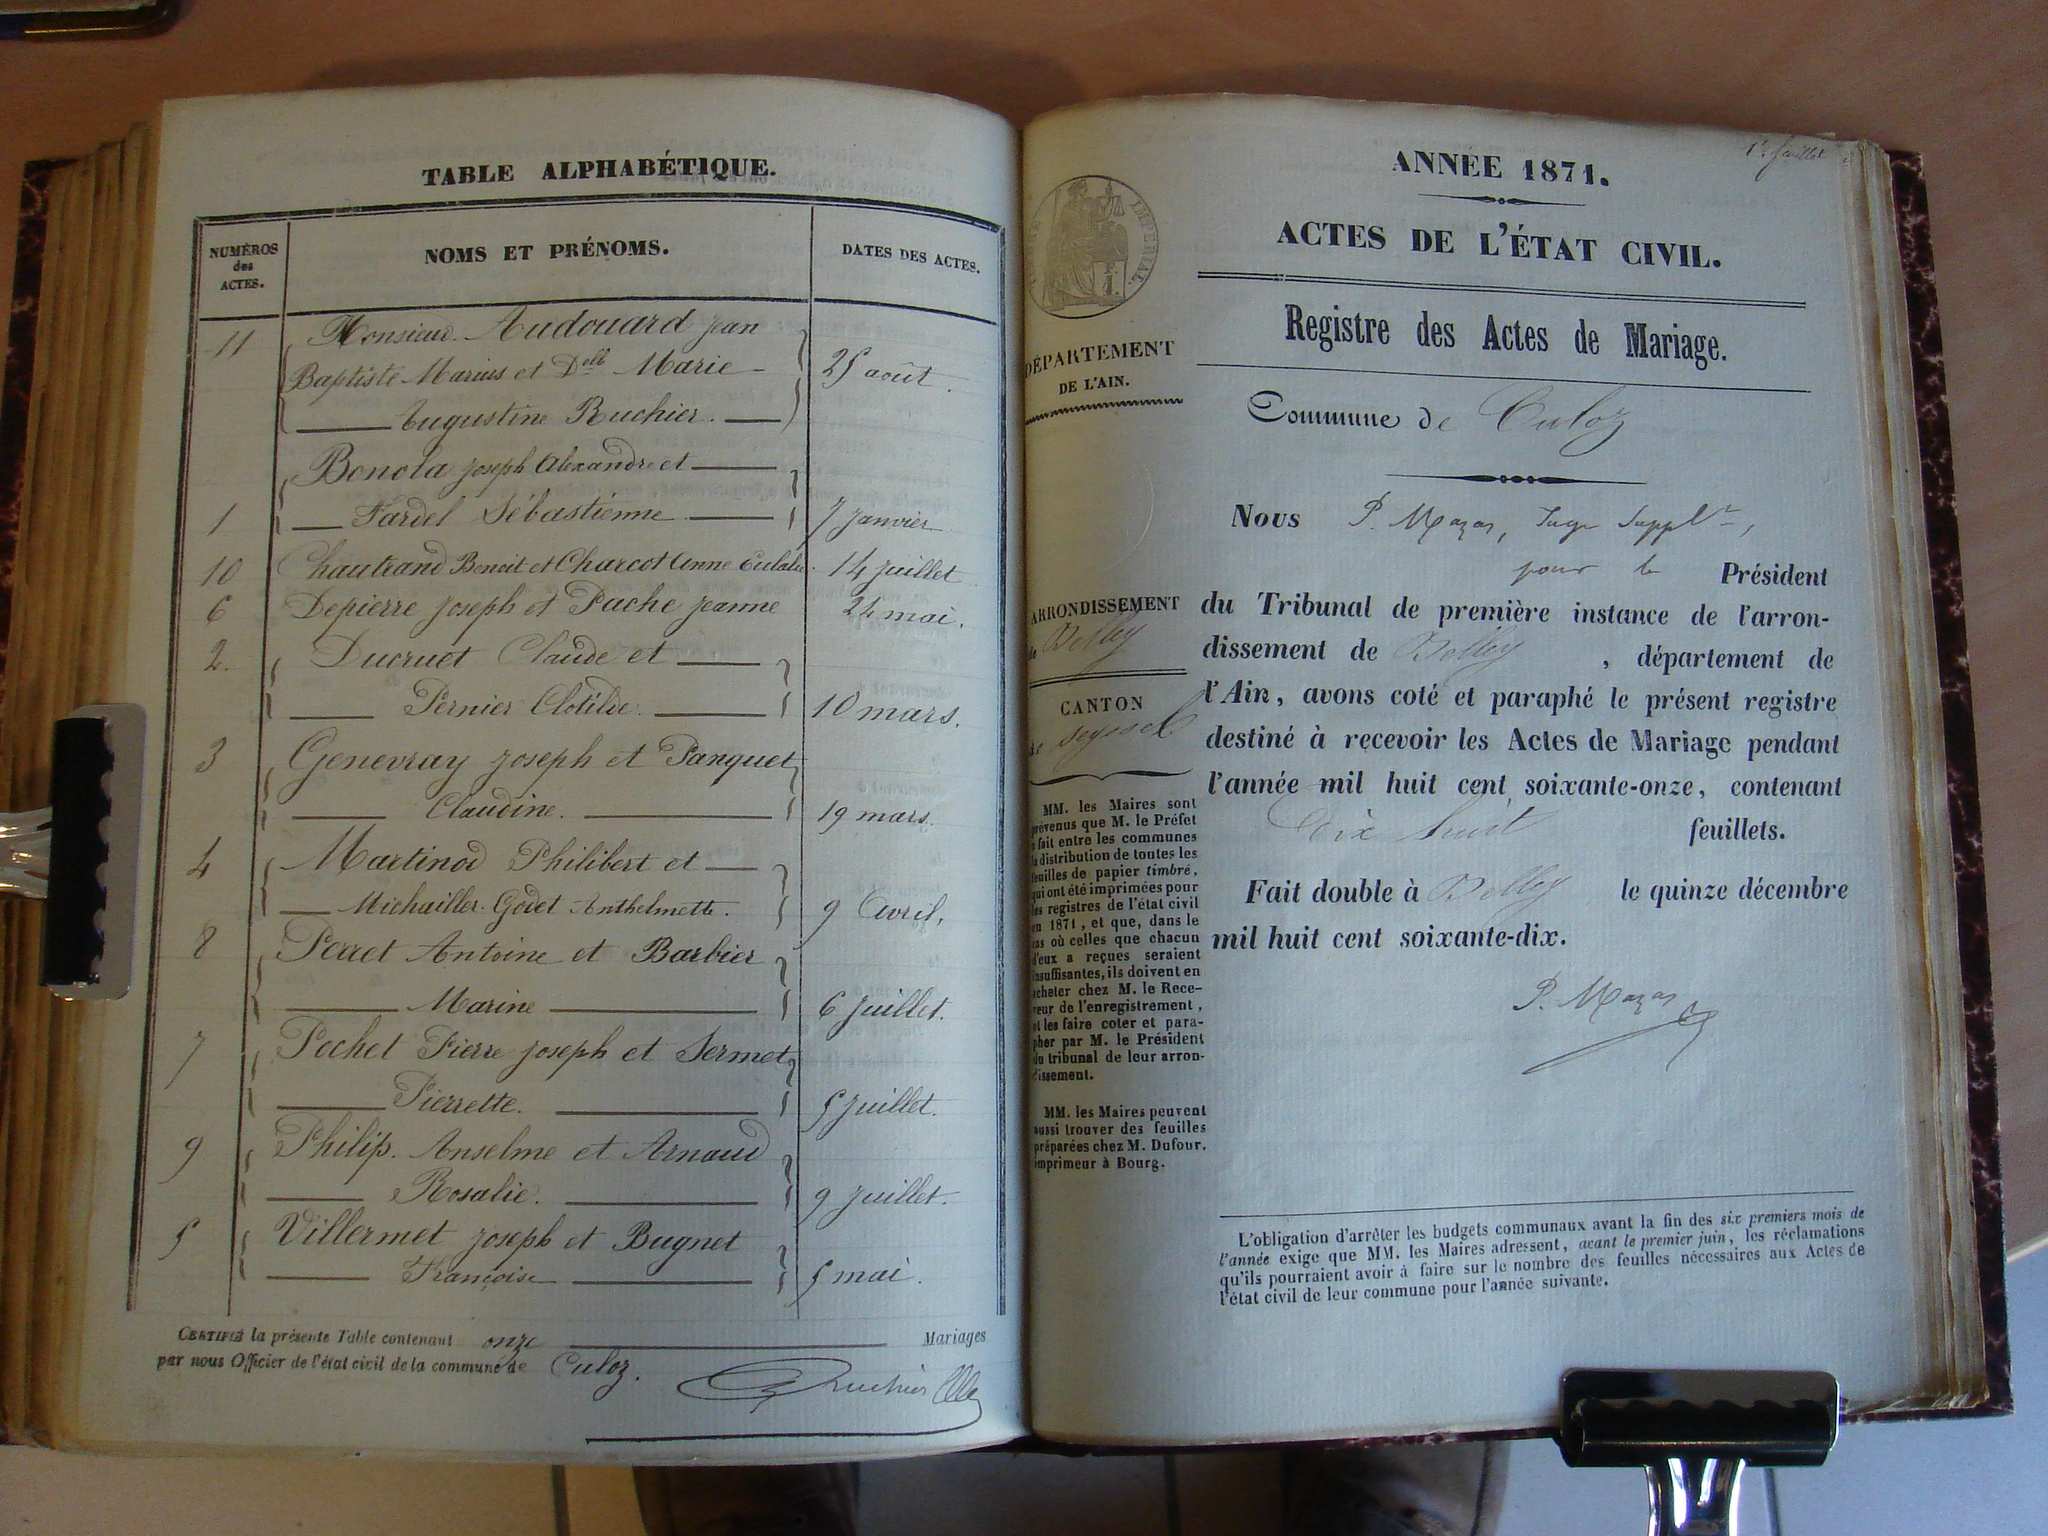 TABLE ALPHABÉTIQUE.
NUMÉROS des ACTES.
NOMS ET PRÉNOMS.
DATES DES ACTES.
11 Monsieur Audouard Jean
Baptiste Marius et Delle Marie 25 août.
Augustine Ruchier.
Bonola Joseph Alexandre et
1 Fardel Sébastienne 7 janvier
10 Chautrand Benoit et Charcot Anne Eulalie. 14 juillet
6 Depierre Joseph et Pache Jeanne 24 mai.
2. Ducruet Claude et
Pernier Clotilde. 10 mars.
3 Genevray Joseph et Panquet
Claudine. 19 mars.
4 Martinod Philibert et
Michailler-Godet Anthelmette. 9 Avril,
8 Perret Antoine et Barbier
Marine 6 juillet.
7 Pochet Pierre Joseph et Sermet
Pierrette. 5 juillet.
9 Philip. Anselme et Arnaud
Rosalie. 9 juillet.
5 Villermet Joseph et Bugnet
Françoise 5 mai.
CERTIFIÉ la présente Table contenant onze Mariages
par nous Officier de l'état civil de la commune de Culoz.
Ruchier
1er feuillet
ANNÉE 1871.
ACTES DE L'ÉTAT CIVIL.
Registre des Actes de Mariage.
IMPERIAL.
DÉPARTEMENT
DE L'AIN.
Commune de Culoz
Nous P. Mazas, Juge Supplt,
pour le Président
du Tribunal de première instance de l'arron-
dissement de Belley, département de
l'Ain, avons coté et paraphé le présent registre
destiné à recevoir les Actes de Mariage pendant
l'année mil huit cent soixante-onze, contenant
Dix huit feuillets.
Fait double à Belley le quinze décembre
mil huit cent soixante-dix.
P. Mazas
ARRONDISSEMENT
de Belley
CANTON
de Seyssel
MM. les Maires sont
prévenus que M. le Préfet
a fait entre les communes
la distribution de toutes les
feuilles de papier timbré,
qui ont été imprimées pour
les registres de l'état civil
en 1871, et que, dans le
cas où celles que chacun
d'eux a reçues seraient
insuffisantes, ils doivent en
acheter chez M. le Rece-
veur de l'enregistrement,
et les faire coter et para-
pher par M. le Président
du tribunal de leur arron-
dissement.
MM. les Maires peuvent
aussi trouver des feuilles
préparées chez M. Dufour,
imprimeur à Bourg.
L'obligation d'arrêter les budgets communaux avant la fin des six premiers mois de
l'année exige que MM. les Maires adressent, avant le premier juin, les réclamations
qu'ils pourraient avoir à faire sur le nombre des feuilles nécessaires aux Actes de
l'état civil de leur commune pour l'année suivante.